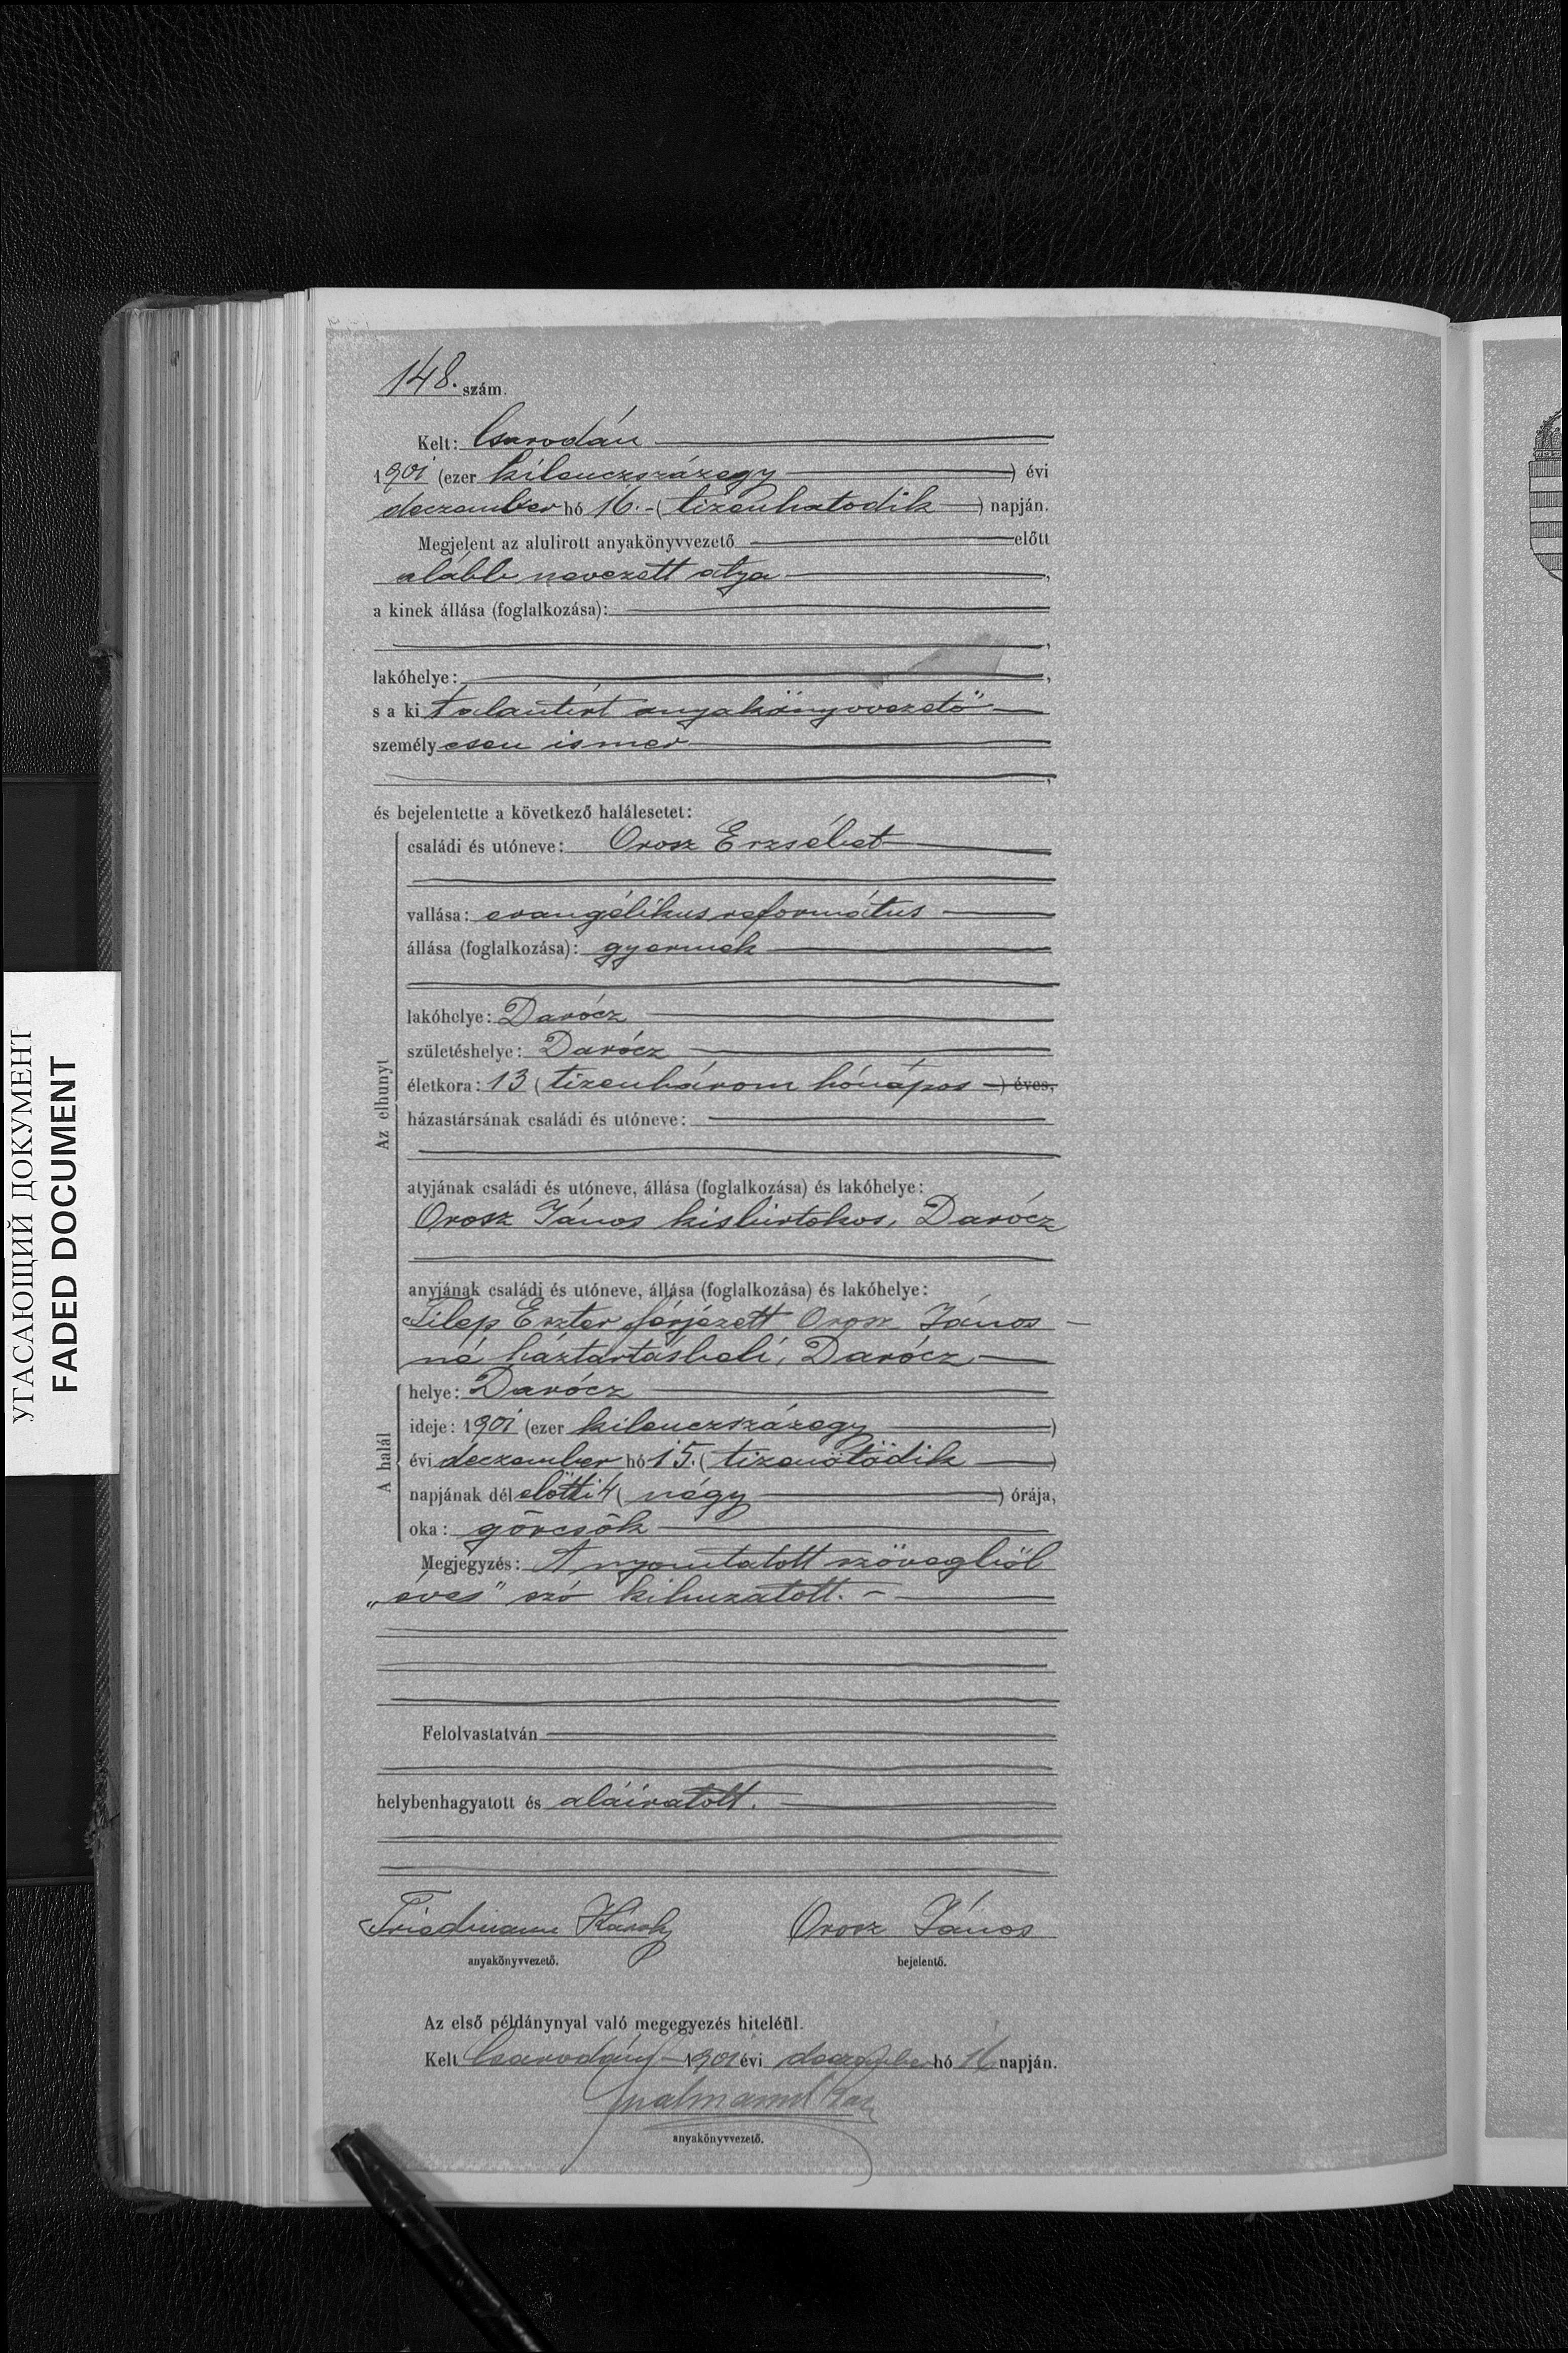 148. szám.
Kelt: Csarodán
1901 (ezer kilenczszázegy) évi
deczember hó 16. - (tizenhatodik) napján.
Megjelent az alulirott anyakönyvvezető előtt
alább nevezett atya,
a kinek állása (foglalkozása):
lakóhelye:
s a ki t alantirt anyakönyvvezető
személy esen ismer
és bejelentette a következő halálesetet:
Az elhunyt
családi és utóneve: Orosz Erzsébet
vallása: evangélikus református
állása (foglalkozása): gyermek
lakóhelye: Darócz
születéshelye: Darócz
életkora: 13 (tizenhárom hónapos) éves,
házastársának családi és utóneve:
atyjának családi és utóneve, állása (foglalkozása) és lakóhelye:
Orosz János kisbirtokos, Darócz
anyjának családi és utóneve, állása (foglalkozása) és lakóhelye:
Filep Eszter férjezett Orosz János-
né háztartásbeli, Darócz
A halál
helye: Darócz
ideje: 1901 (ezer kilenczszázegy)
évi deczember hó 15. (tizenötödik)
napjának dél előtti 4 (négy) órája,
oka: görcsök
Megjegyzés: A nyomtatott szövegből
„éves" szó kihuzatott. -
Felolvastatván
helybenhagyatott és aláiratott.
Friedmann Károly Orosz János
anyakönyvvezető. bejelentő.
Az első példánynyal való megegyezés hiteléül.
Kelt Csarodán 1901 évi deczember hó 16 napján.
anyakönyvvezető.
УГАСАЮЩИЙ ДОКУМЕНТ
FADED DOCUMENT